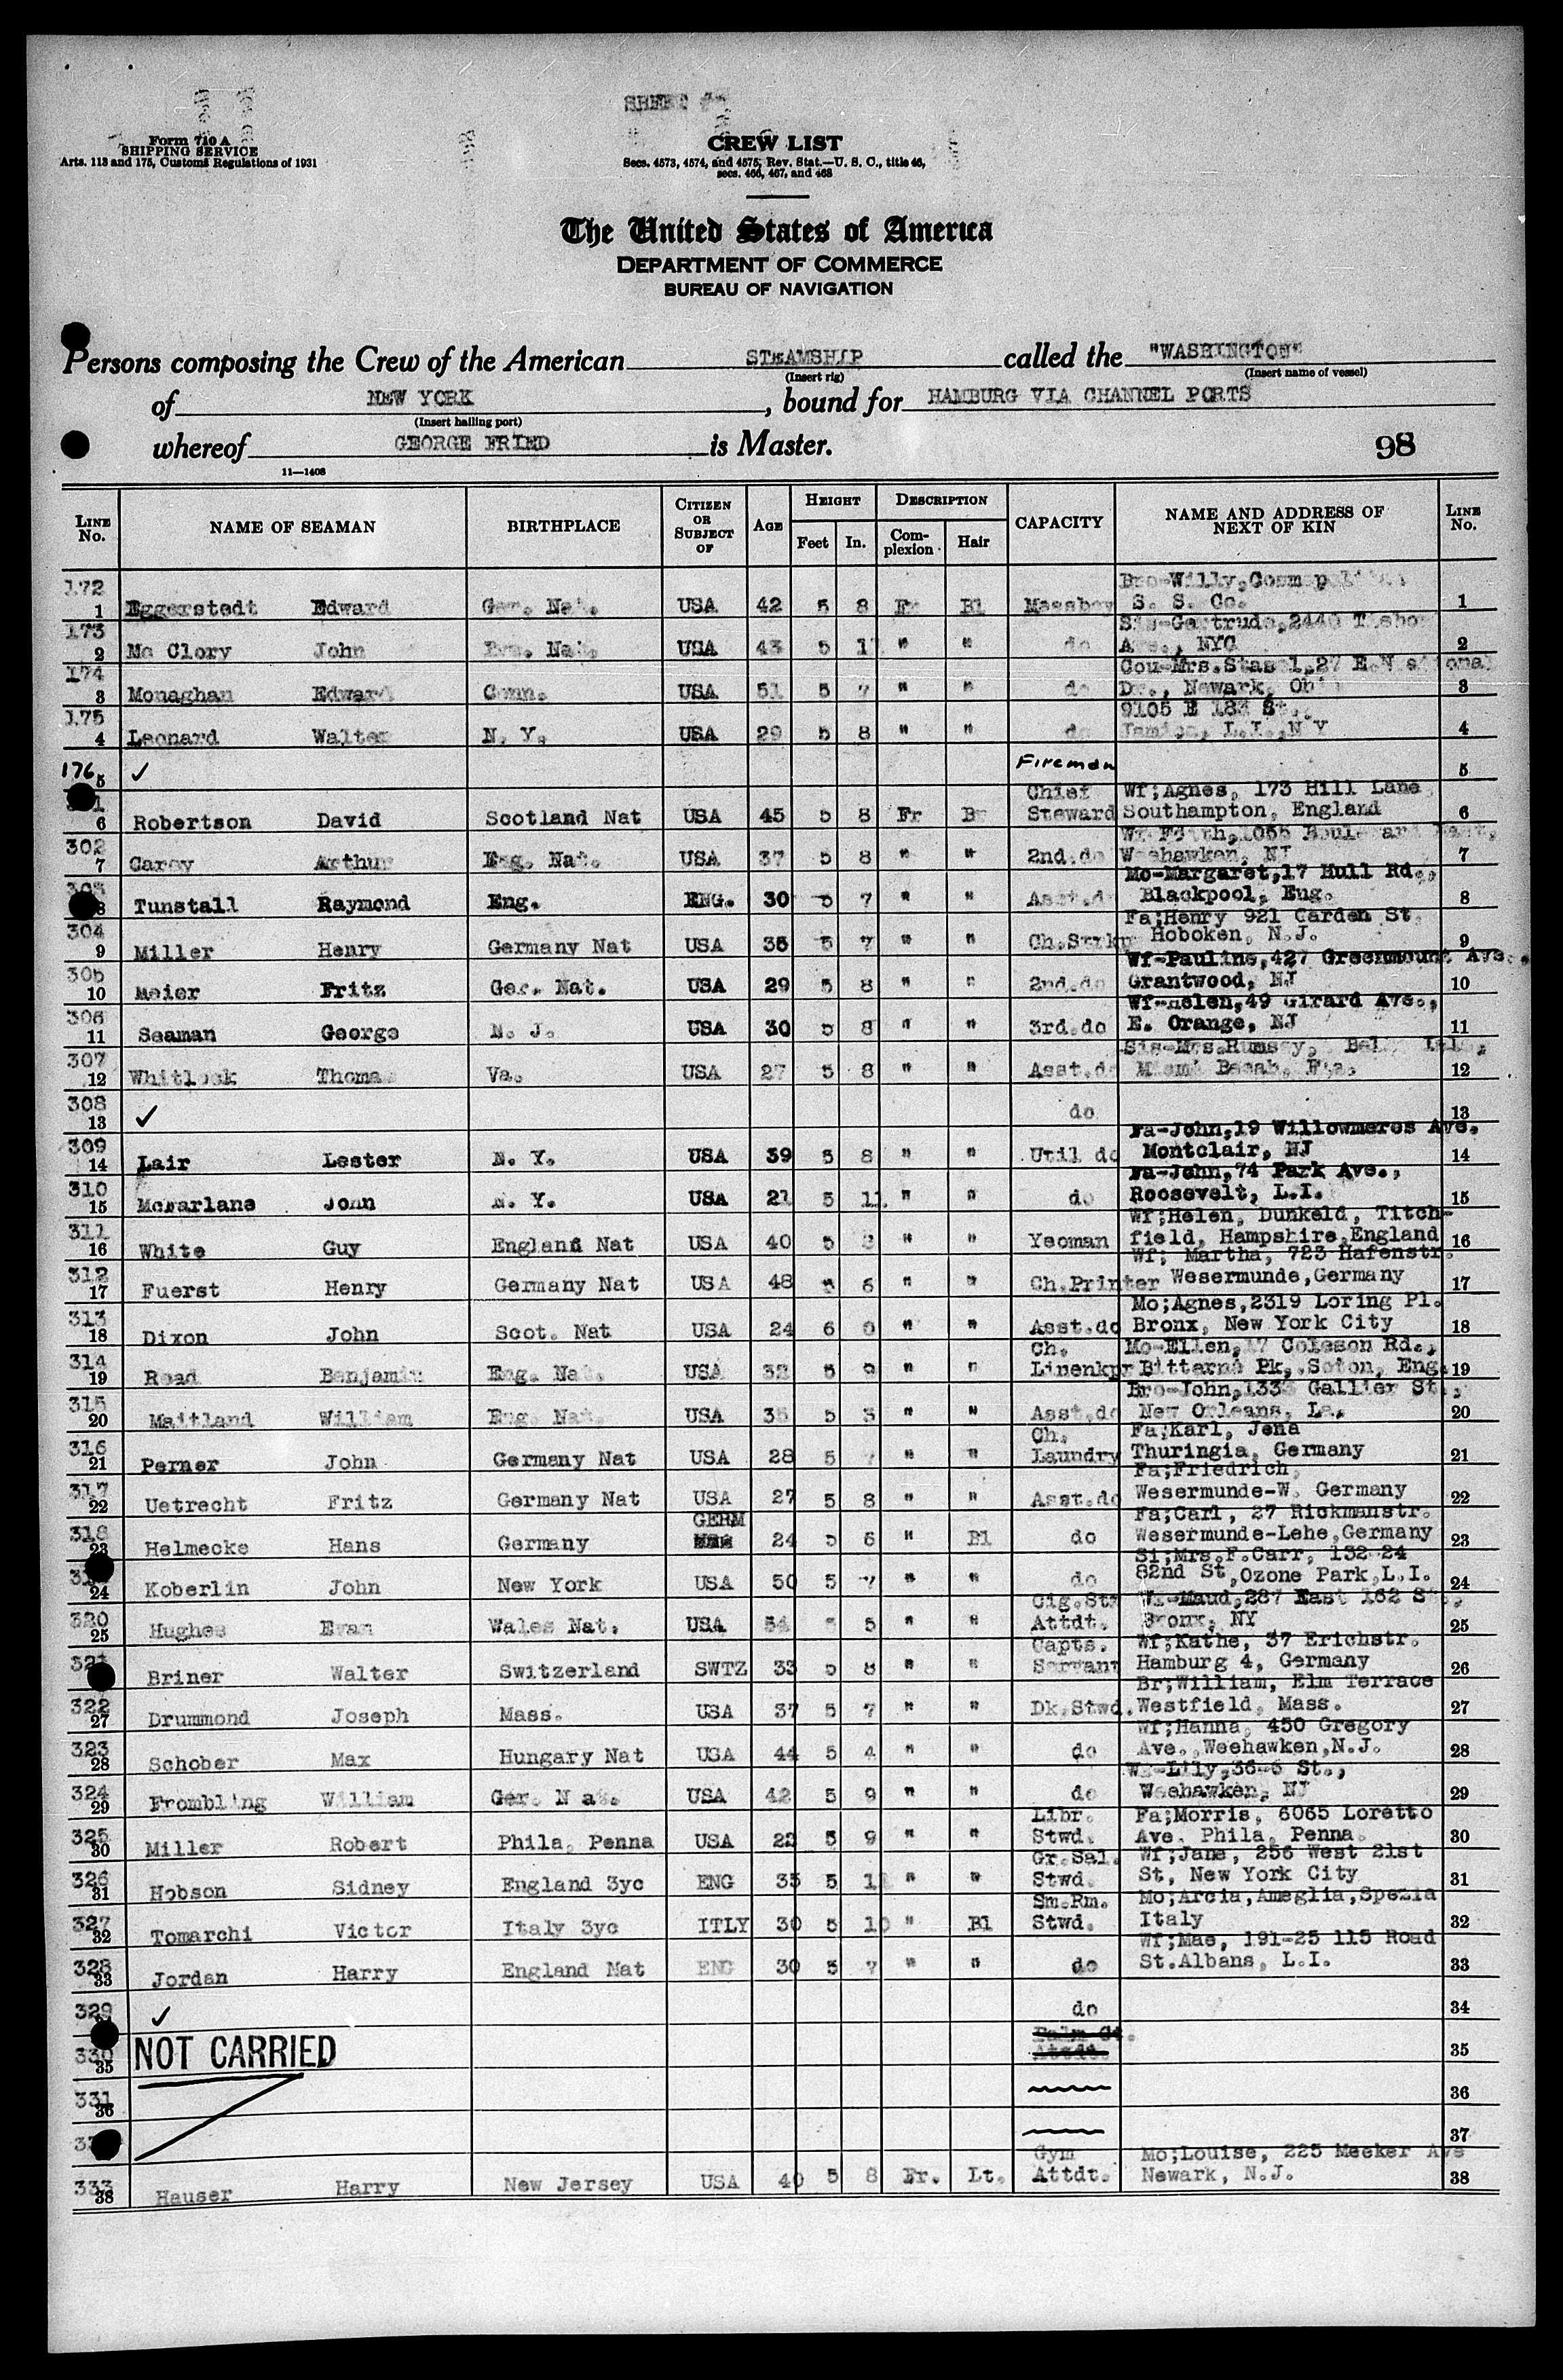 SHEET
Form 710 A
SHIPPING SERVICE
Arts. 113 and 175, Customs Regulations of 1931
CREW LIST
Secs. 4573, 4574, and 4575, Rev. Stat.—U. S. C., title 46,
secs. 466, 467, and 468
The United States of America
DEPARTMENT OF COMMERCE
BUREAU OF NAVIGATION
Persons composing the Crew of the American STEAMSHIP called the "WASHINGTON"
(Insert rig) (Insert name of vessel)
of NEW YORK, bound for HAMBURG VIA CHANNEL PORTS
(Insert hailing port)
whereof GEORGE FRIED is Master. 98
11—1408
LINE No. NAME OF SEAMAN BIRTHPLACE CITIZEN OR SUBJECT OF AGE HEIGHT Feet In. DESCRIPTION Complexion Hair CAPACITY NAME AND ADDRESS OF NEXT OF KIN LINE No.
172 Bro-Willy,
1 Eggerstedt Edward Ger. Nat. USA 42 5 8 Fr Bl Messboy S. S. Co. 1
173 Sis-Gertrude, 2440
2 Mc Clory John Nat. USA 43 5 " " do Ave., NYC 2
174 Cou-Mrs. 27 E.
3 Monaghan Edward Conn. USA 51 5 7 " " do Dr., Newark, 3
175 9105 E 183 St.
4 Leonard Walter N. Y. USA 29 5 8 " " do L.I., NY 4
176 5 ✓ Fireman 5
Chief Wf;Agnes, 173 Hill Lane
6 Robertson David Scotland Nat USA 45 5 8 Fr Br Steward Southampton, England 6
302 1055 Boulevard East,
7 Carey Arthur Eng. Nat. USA 37 5 8 " " 2nd.do Weehawken, NJ 7
Mo-Margaret,17 Hull Rd.,
8 Tunstall Raymond Eng. ENG. 30 5 7 " " Asst.do Blackpool, Eng. 8
304 Fa;Henry 921 Garden St.
9 Miller Henry Germany Nat USA 35 5 7 " " Hoboken, N.J. 9
305 Wf-Pauline,427 Greenmount Ave.
10 Meier Fritz Ger. Nat. USA 29 5 8 " " 2nd.do Grantwood, NJ 10
306 Wf-Helen,49 Girard Ave.,
11 Seaman George N. J. USA 30 5 8 " " 3rd.do E. Orange, NJ 11
307 Sis-Mrs.Rumsey,
12 Whitlock Thomas Va. USA 27 5 8 " " Asst.do Miami Beach, Fla. 12
308 13 ✓ do 13
309 Fa-John,19 Willowmere Ave.
14 Lair Lester N. Y. USA 39 5 8 " " Util do Montclair, NJ 14
310 Fa-John,74 Park Ave.,
15 McFarlane John N. Y. USA 21 5 11 " " do Roosevelt, L.I. 15
311 Wf;Helen, Dunkeld, Titch-
16 White Guy England Nat USA 40 5 " " Yeoman field, Hampshire,England 16
312 Wf; Martha, 723 Hafenstr.
17 Fuerst Henry Germany Nat USA 48 5 6 " " Ch.Printer Wesermunde,Germany 17
313 Mo;Agnes,2319 Loring Pl.
18 Dixon John Scot. Nat USA 24 6 0 " " Asst.do Bronx, New York City 18
314 Ch. Mo-Ellen,17 Coleson Rd.,
19 Read Benjamin Eng. Nat. USA 5 " " Linenkpr Bitterne Pk, Soton, Eng. 19
315 Bro-John, Gallier St.,
20 Maitland William Eng. Nat. USA 5 " " Asst.do New Orleans, La. 20
316 Ch. Fa;Karl, Jena
21 Perner John Germany Nat USA 28 5 " " Laundry Thuringia, Germany 21
317 Fa;Friedrich,
22 Uetrecht Fritz Germany Nat USA 27 5 8 " " Asst.do Wesermunde-W. Germany 22
318 GERM Fa;Carl, 27 Rickmanstr.
23 Helmecke Hans Germany 24 5 6 " Bl do Wesermunde-Lehe,Germany 23
Si;Mrs.F.Carr, 132-24
24 Koberlin John New York USA 50 5 7 " " do 82nd St,Ozone Park,L.I. 24
320 Cig.Str Wf-Maud,287 East 162 St.,
25 Hughes Evan Wales Nat. USA 54 5 " " Attdt. Bronx, NY 25
321 Capts. Wf;Kathe, 37 Erichstr.
26 Briner Walter Switzerland SWTZ 33 5 8 " " Servant Hamburg 4, Germany 26
322 Br;William, Elm Terrace
27 Drummond Joseph Mass. USA 37 5 7 " " Dk.Stwd. Westfield, Mass. 27
323 Wf;Hanna, 450 Gregory
28 Schober Max Hungary Nat USA 44 5 4 " " do Ave.,Weehawken,N.J. 28
324 Wf-Lily,36-5 St.,
29 Frombling William Ger. Nat. USA 42 5 9 " " do Weehawken, NJ 29
325 Libr. Fa;Morris, 6065 Loretto
30 Miller Robert Phila. Penna USA 22 5 9 " " Stwd. Ave. Phila. Penna. 30
326 Gr.Sal. Wf;Jane, 256 West 21st
31 Hobson Sidney England 3yc ENG 35 5 11 " " Stwd. St, New York City 31
327 Sm.Rm. Mo;Arcia,Ameglia,Spezia
32 Tomarchi Victor Italy 3yc ITLY 30 5 10 " Bl Stwd. Italy 32
328 Wf;Mae, 191-25 115 Road
33 Jordan Harry England Nat ENG 30 5 7 " " do St.Albans, L.I. 33
329 ✓ do 34
330 35 NOT CARRIED Palm Ct. Attdt. 35
331 36 36
37
333 Gym Mo;Louise, 225 Meeker Ave
38 Hauser Harry New Jersey USA 40 5 8 Fr. Lt. Attdt. Newark, N.J. 38